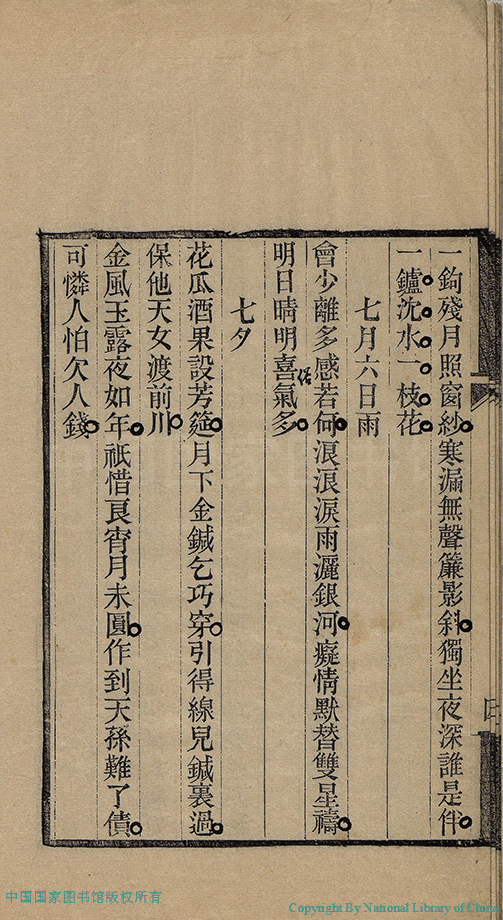 一鉤殘月照窗紗寒漏無聲簾影斜獨坐夜深誰是伴
一鑪沈水一枝花
七月六日雨
會少離多感若何浪浪淚雨灑銀河癡情默替雙星禱
明日晴明喜氣多
七夕
花瓜酒果設芳筵月下金鍼乞巧穿引得線兒鍼裏過
保他天女渡前川
金風玉露夜如年祇惜良宵月未圓作到天孫難了債
可憐人怕欠人錢
中国国家图书馆版权所有
Copyright By National Library of China